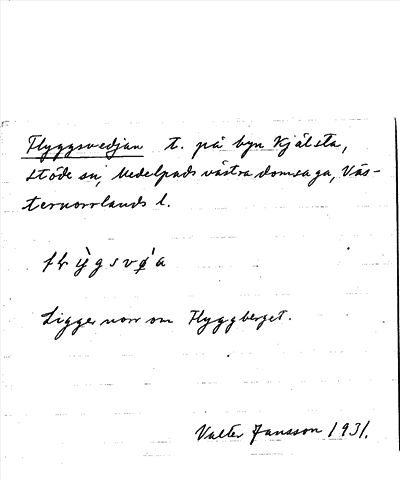 Flyggsvedjan t. på byn Kjälsta,
Stöde sn, Medelpads västra domsaga, Väs-
ternorrlands l.
Ligger norr om Flyggberget.
Valter Jansson 1931.